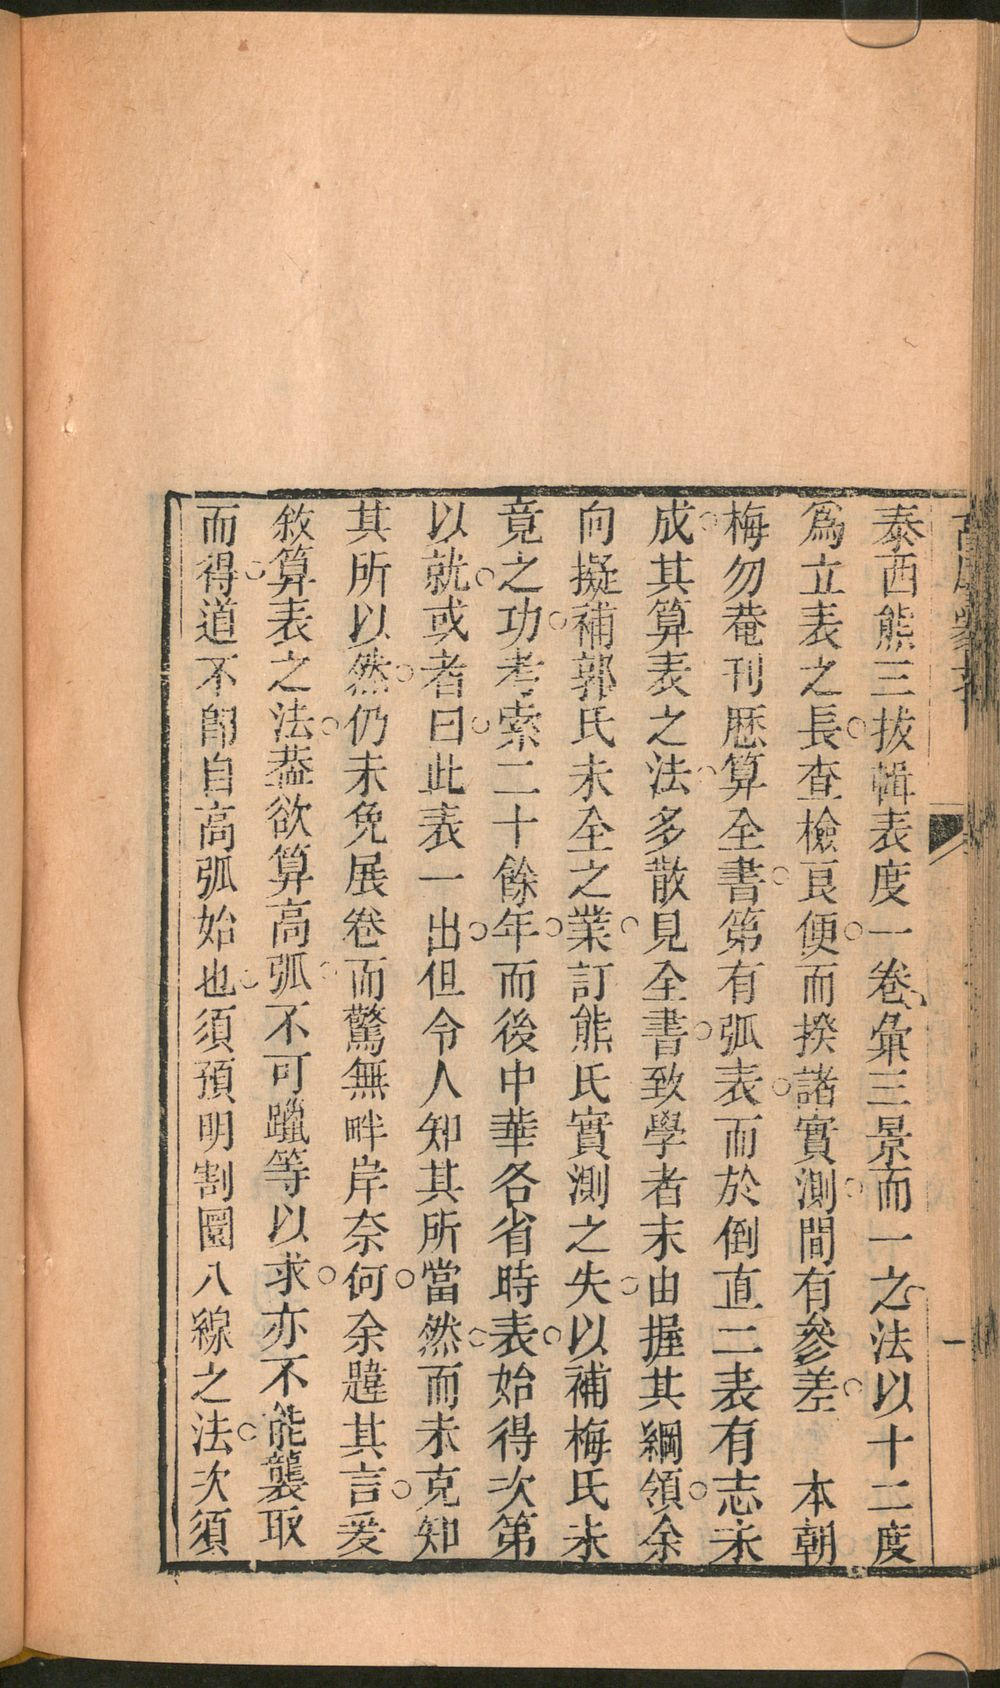 泰西熊三拔輯表度一卷彙三景而一之法以十二度
爲立表之長查檢良便而揆諸實測間有參差　本朝
梅勿菴刊厯算全書第有弧表而於倒直二表有志未
成其算表之法多散見全書致學者末由握其綱領余
向擬補郭氏未全之業訂熊氏實測之失以補梅氏未
竟之功考索二十餘年而後中華各省時表始得次第
以就或者曰此表一出但令人知其所當然而未克知
其所以然仍未免展卷而驚無畔岸奈何余韙其言爰
敘算表之法葢欲算高弧不可躐等以求亦不能襲取
而得道不卽自高弧始也須預明割圜八線之法次須
一